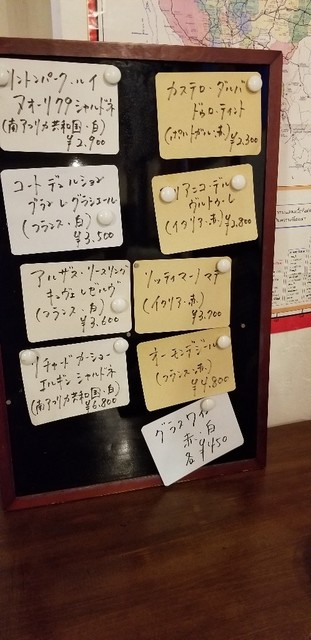 リントンパーク・ルイ
アオーリクラ シャルドネ
(南アフリカ共和国・白)
¥2,900
コート デュ ルション
グラン レ グランエール
(フランス・白)
¥3,500
アルザス・リースリング
キュヴェ レゼルヴ
(フランス・白)
¥3,600
リチャード カーショー
エルギン シャルドネ
(南アフリカ共和国・白)
¥6,800
カステロ・ダルバ
ドウロ・ティント
(ポルトガル・赤)
¥2,300
リアニコ・デル・
ヴルトゥーレ
(イタリア・赤) ¥2,800
(イタリア・赤)
¥3,700
オーモンデジール
(フランス・赤)
¥4,800
グラスワイン
赤・白
各¥450